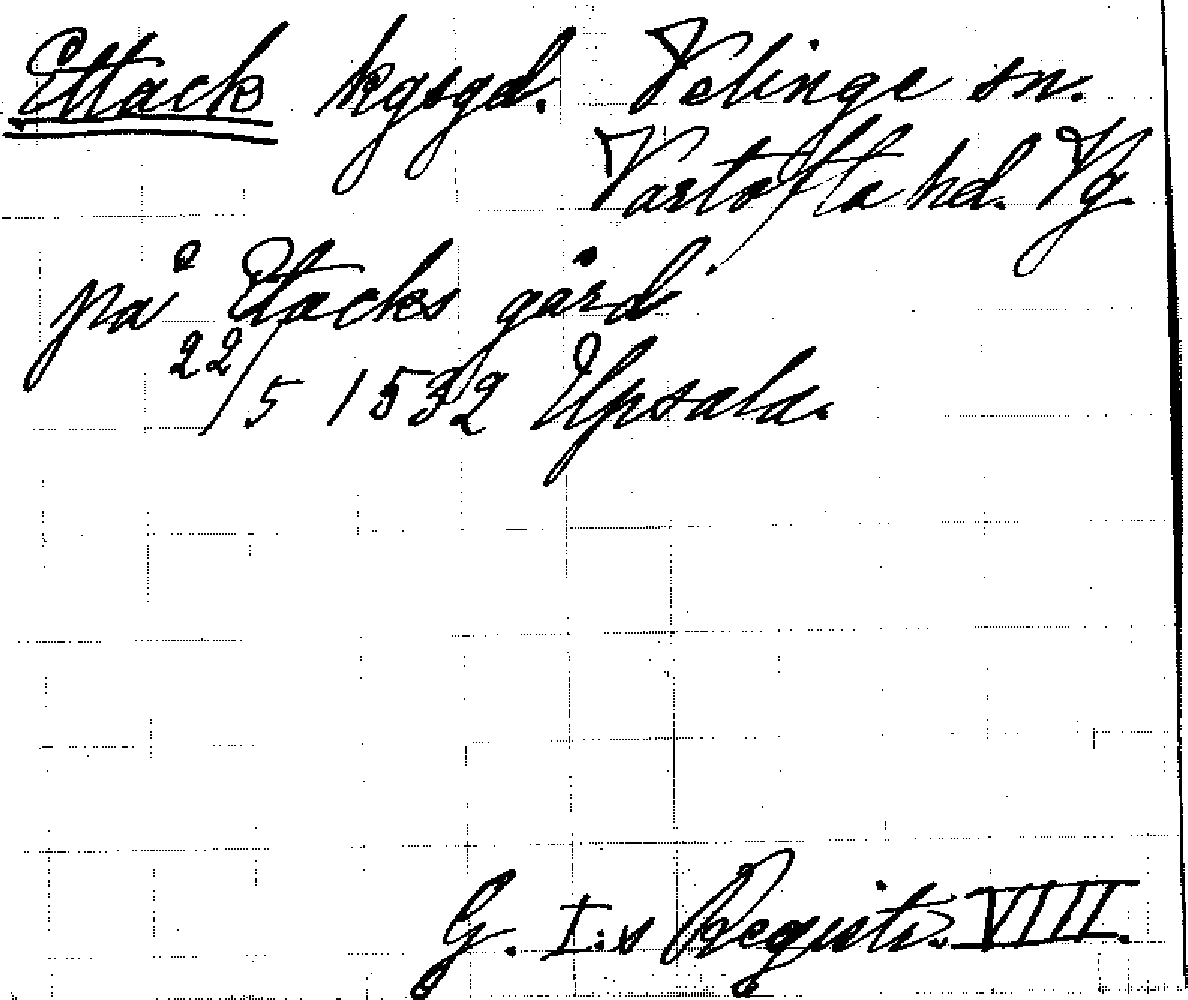 Ettack kgsgd. Velinge sn.
Vartofta hd. Vg.
på Etacks gård
22/5 1532 Upsala.
G. I:s Registr. VIII.